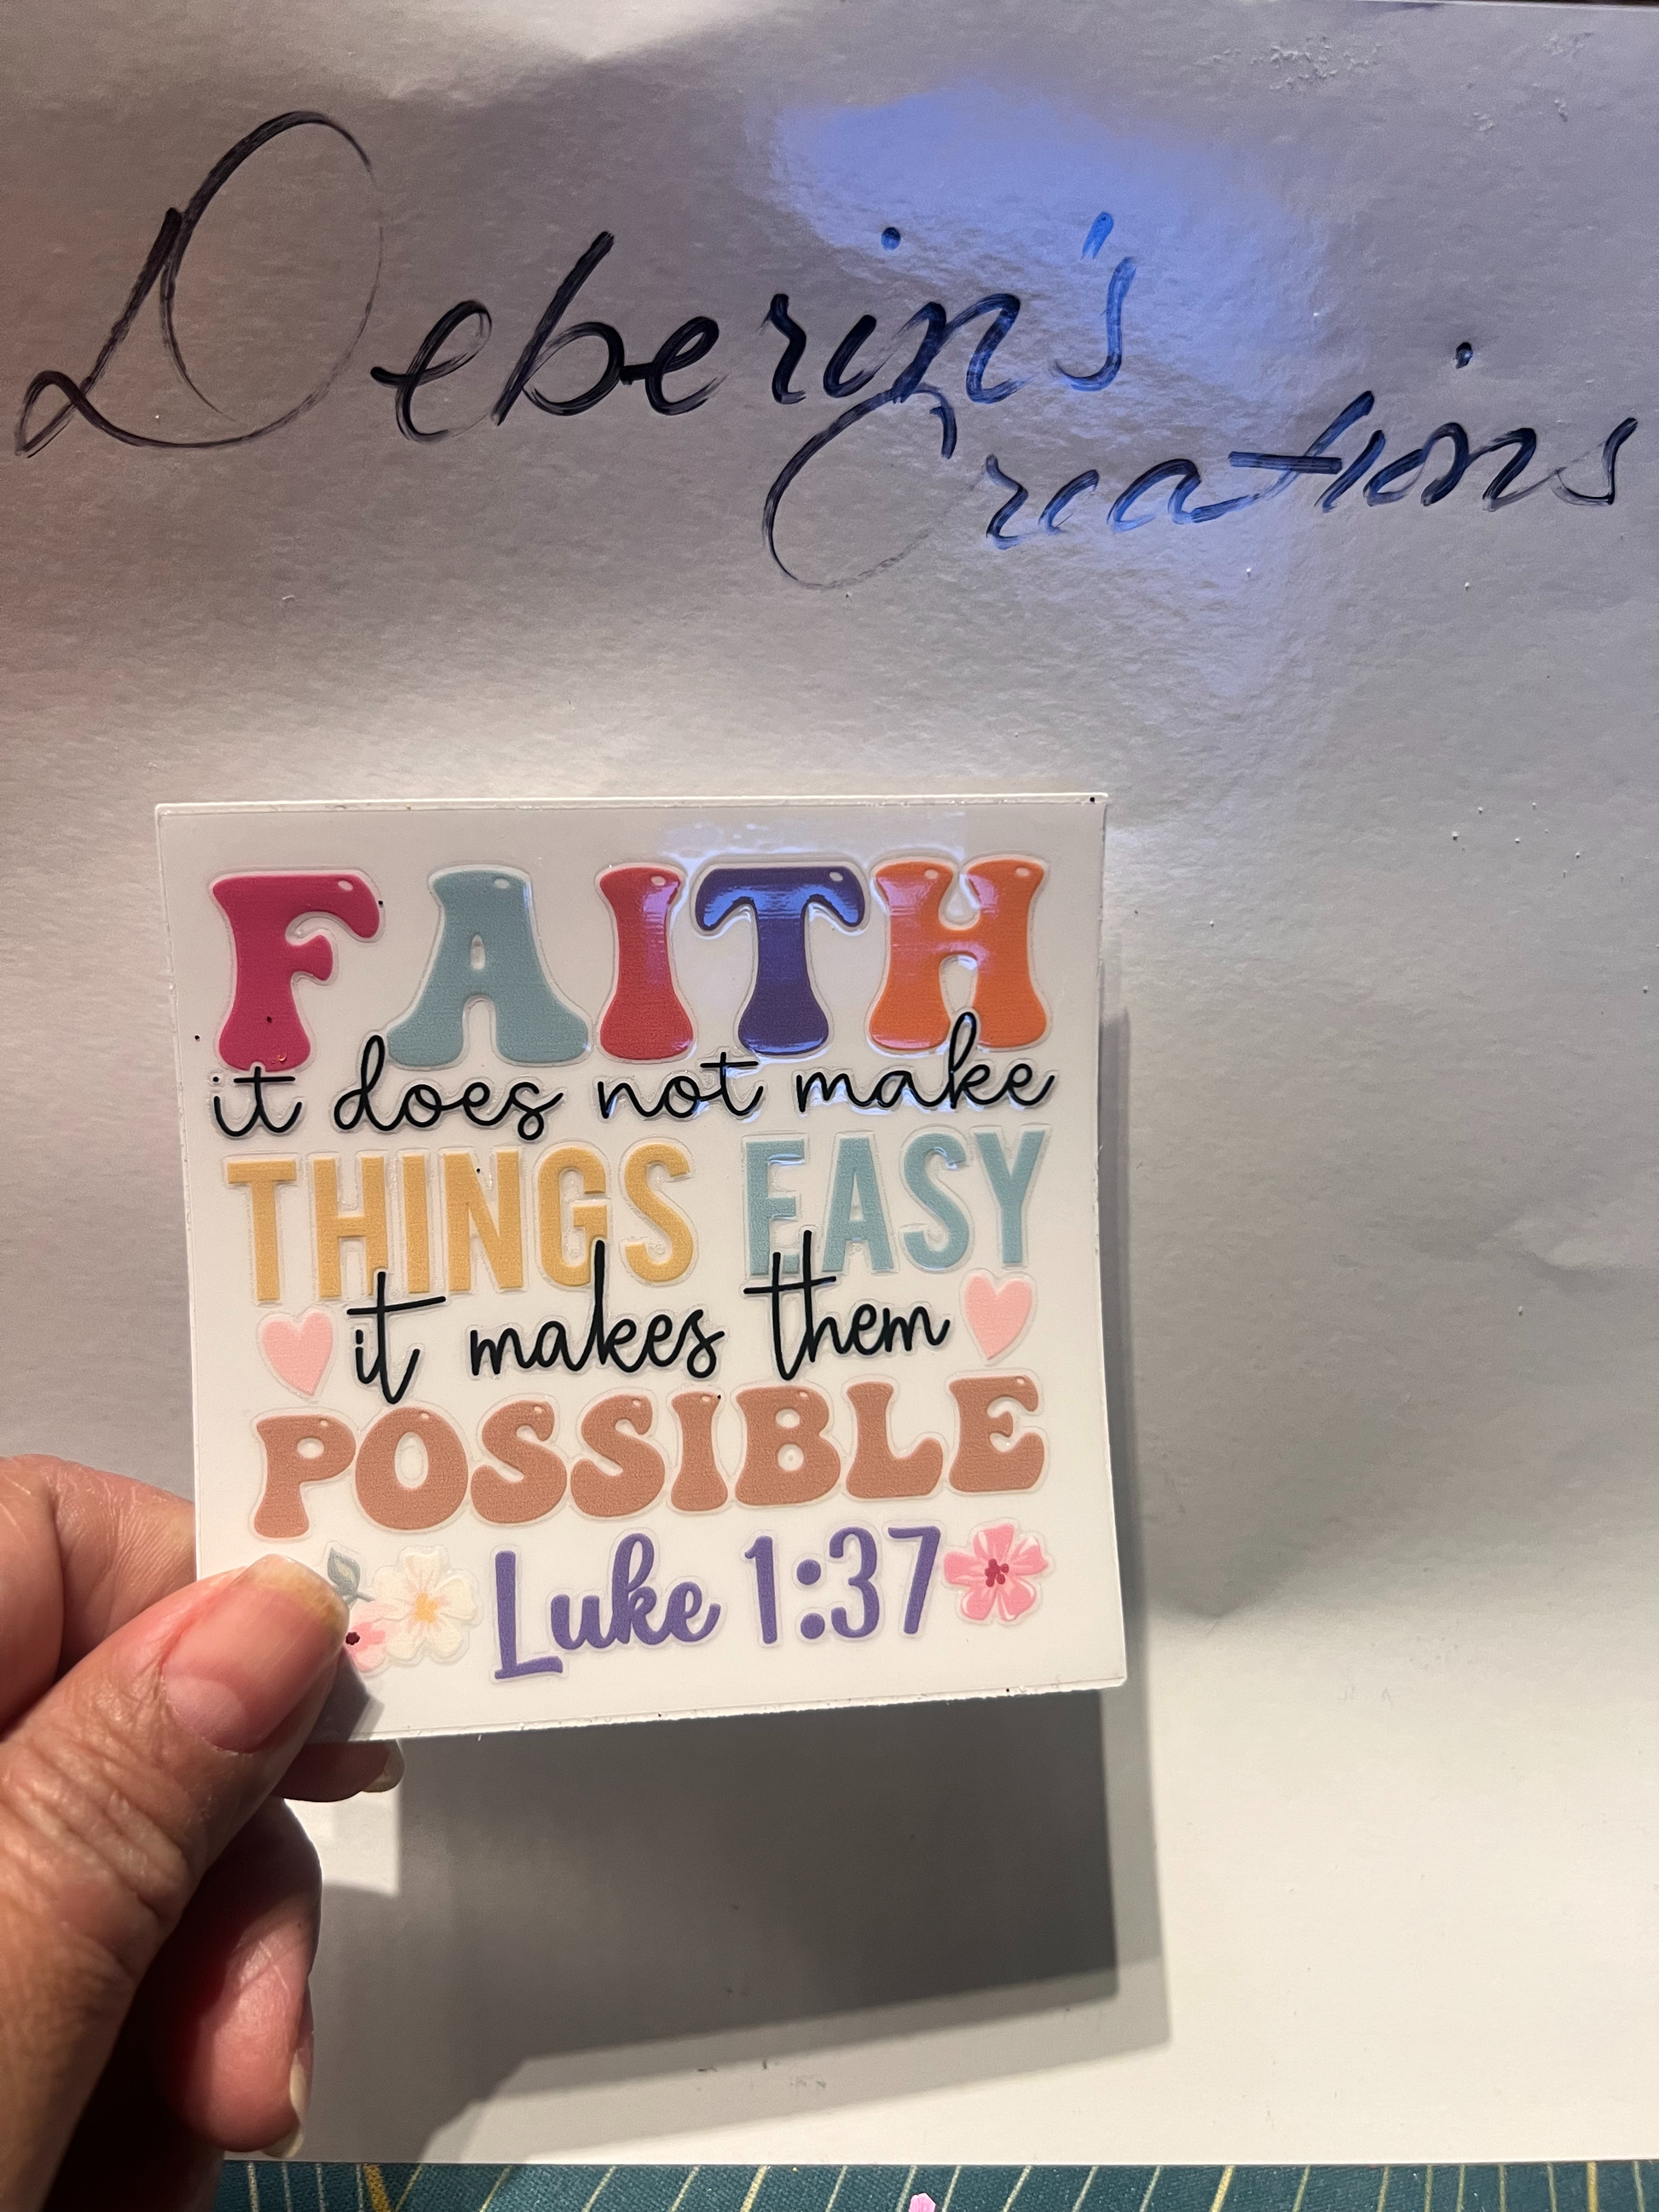 Deberin's
Creations
FAITH
it does not make
THINGS EASY
it makes them
POSSIBLE
Luke 1:37